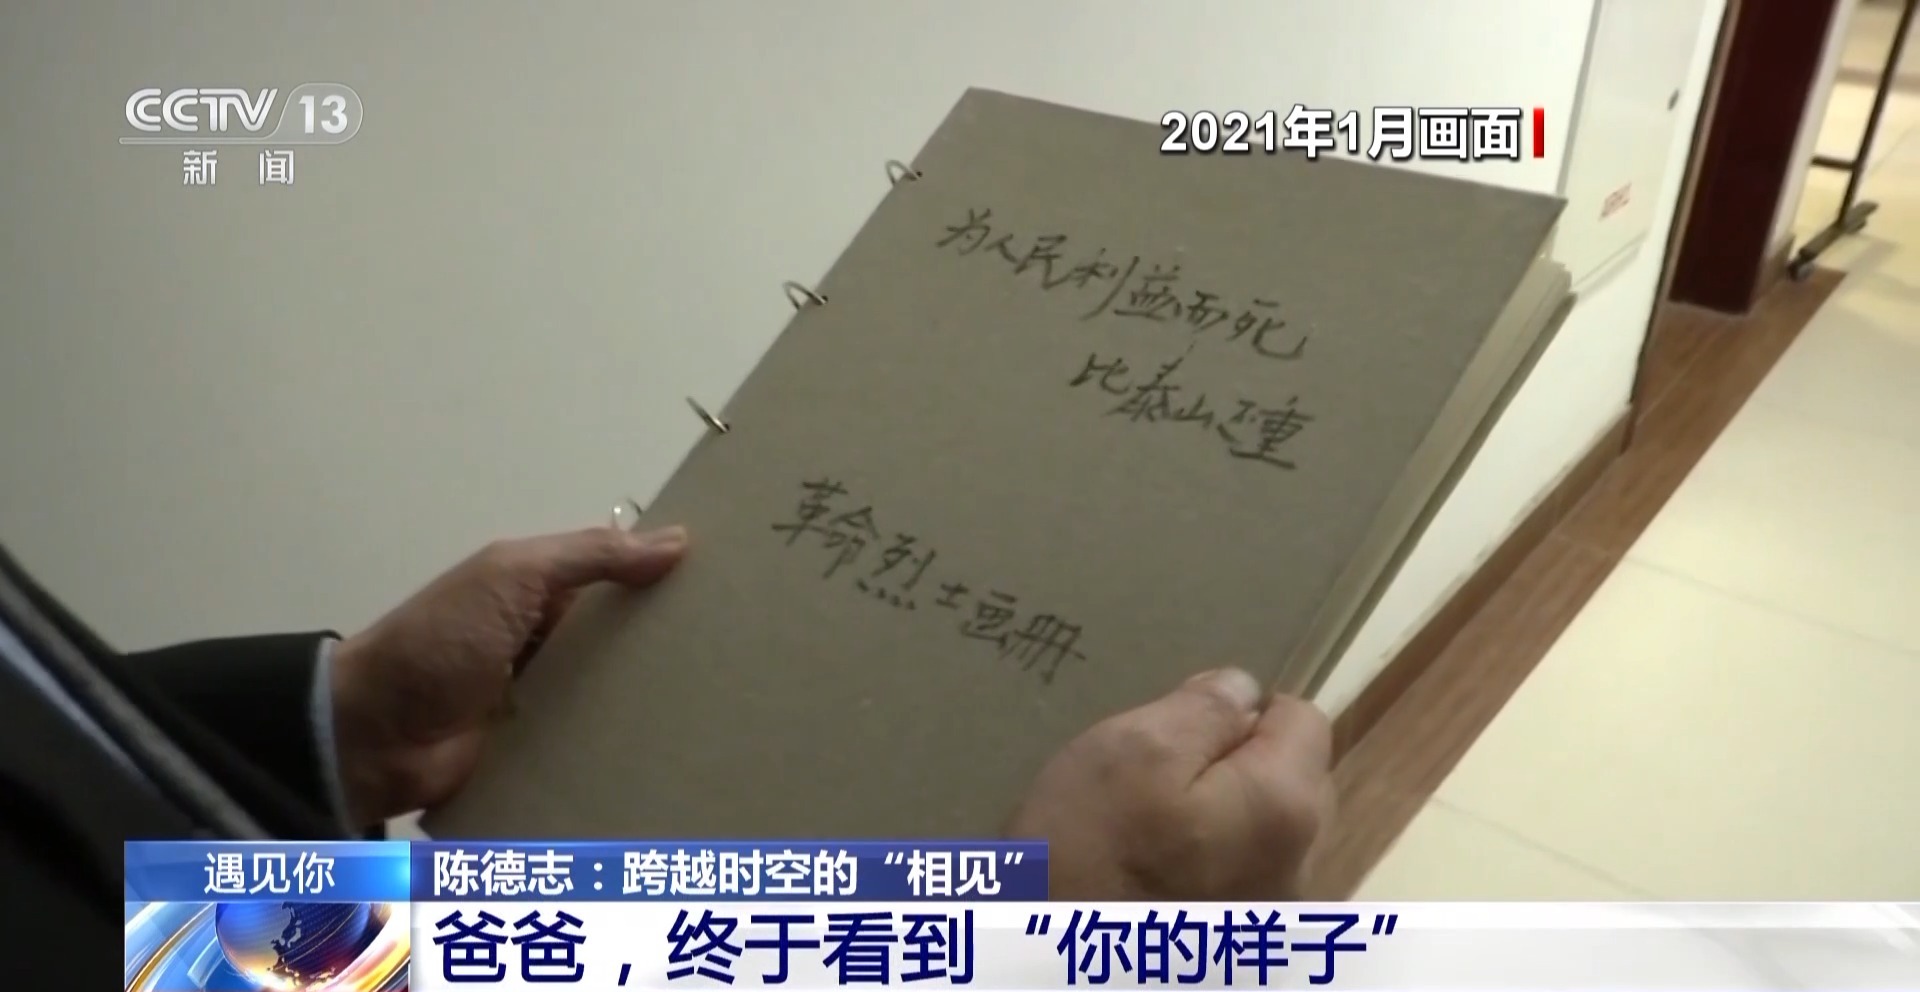 CCTV 13
新闻
2021年1月画面
为人民利益而死
比泰山还重
革命烈士画册
遇见你
陈德志：跨越时空的“相见”
爸爸，终于看到“你的样子”